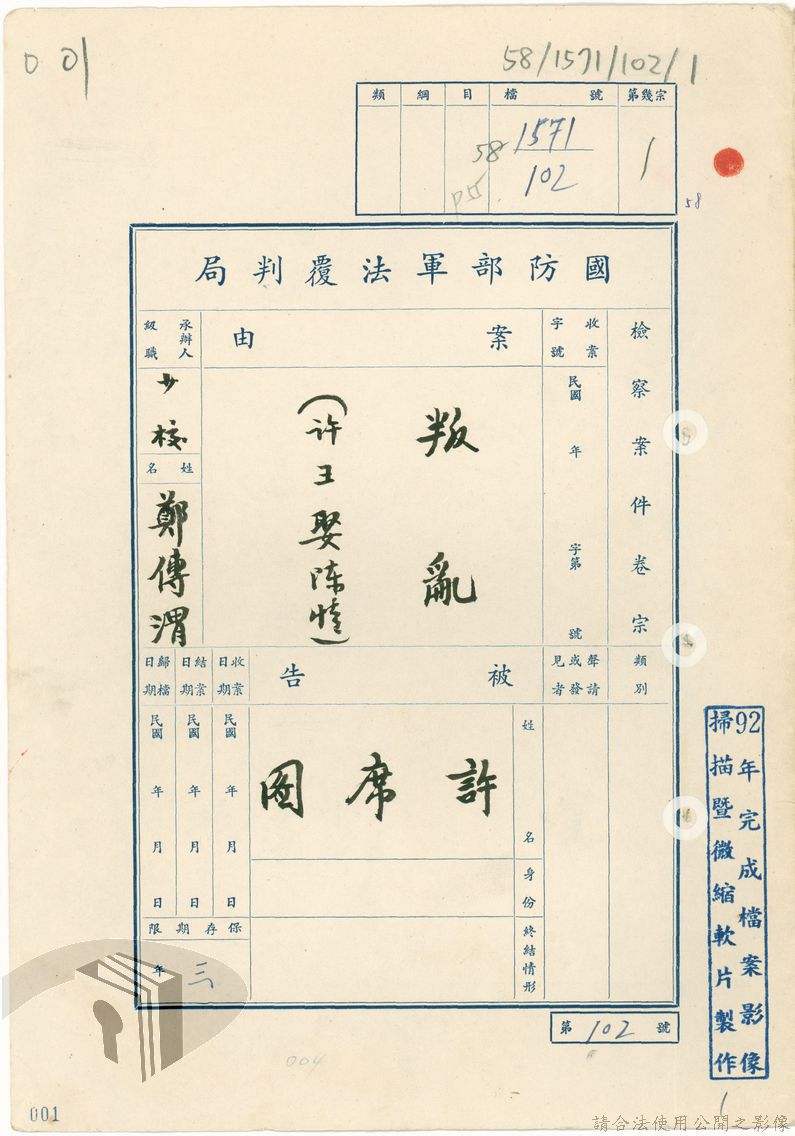 001
58/1571/102/1
類 綱 目 檔號 第幾宗
58 1571
102
1
58
國防部軍法覆判局
檢察案件卷宗
收案字號
民國 年 字第 號
案由
叛亂
(許王娶陳愷)
承辦人級職
少校
姓名
鄭傳渭
類別
聲請或發見者
被告
收案日期
結案日期
歸檔日期
姓名
許席圖
民國 年 月 日
民國 年 月 日
民國 年 月 日
身份
終結情形
保存期限
三年
第 102 號
92年完成檔案影像
掃描暨微縮軟片製作
004
1
001
請合法使用公開之影像